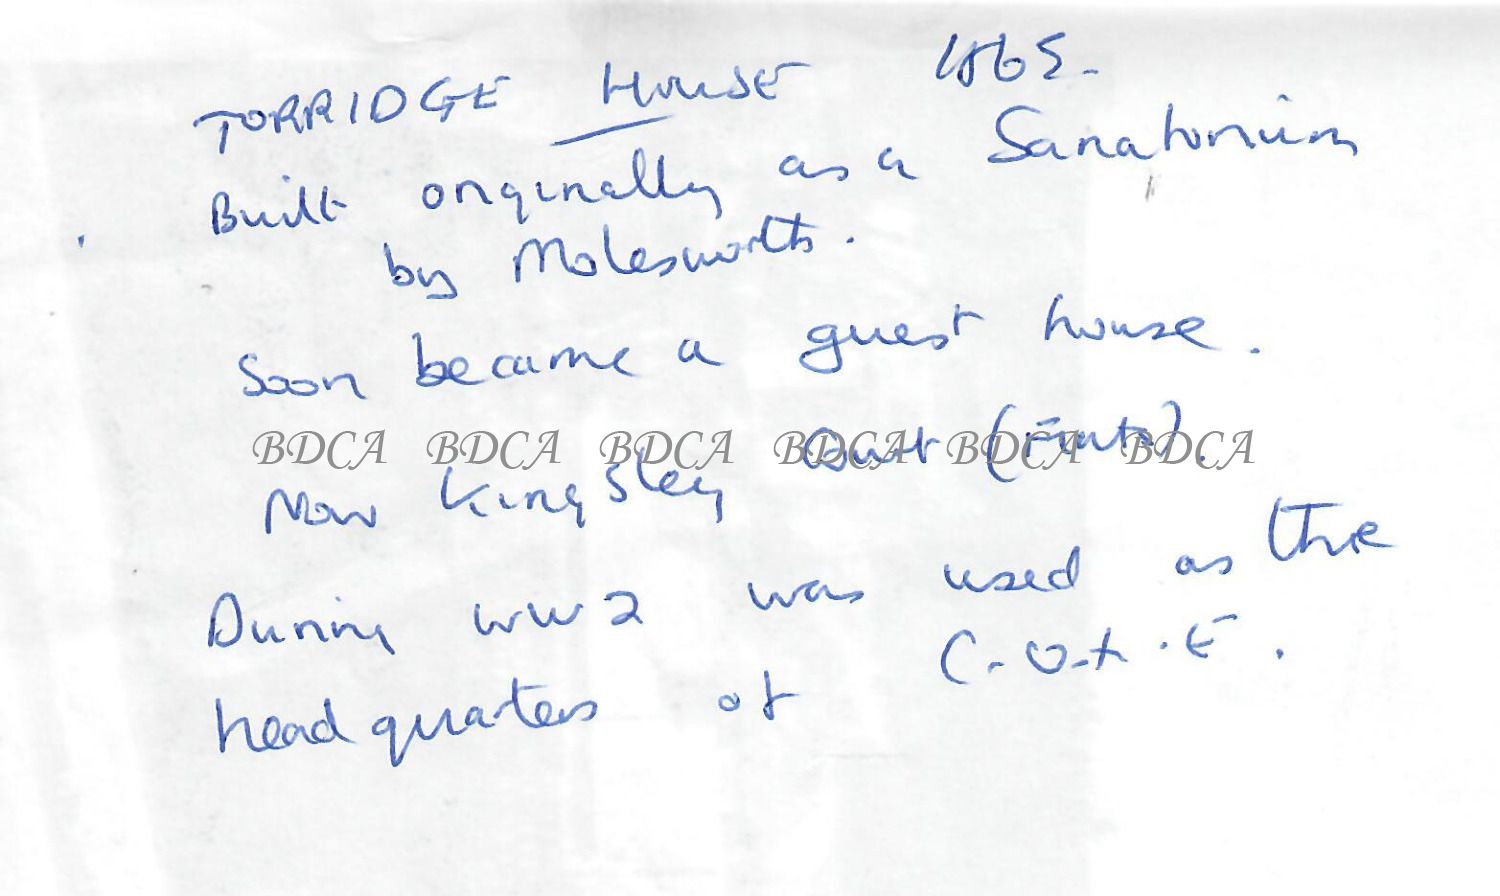 TORRIDGE HOUSE 1865.
Built originally as a Sanatorium
by Molesworth.
Soon became a guest house.
BDCA BDCA BDCA BDCA BDCA BDCA
Now Kingsley Court (Flats).
During WW2 was used as the
headquarters of C.O.X.E.